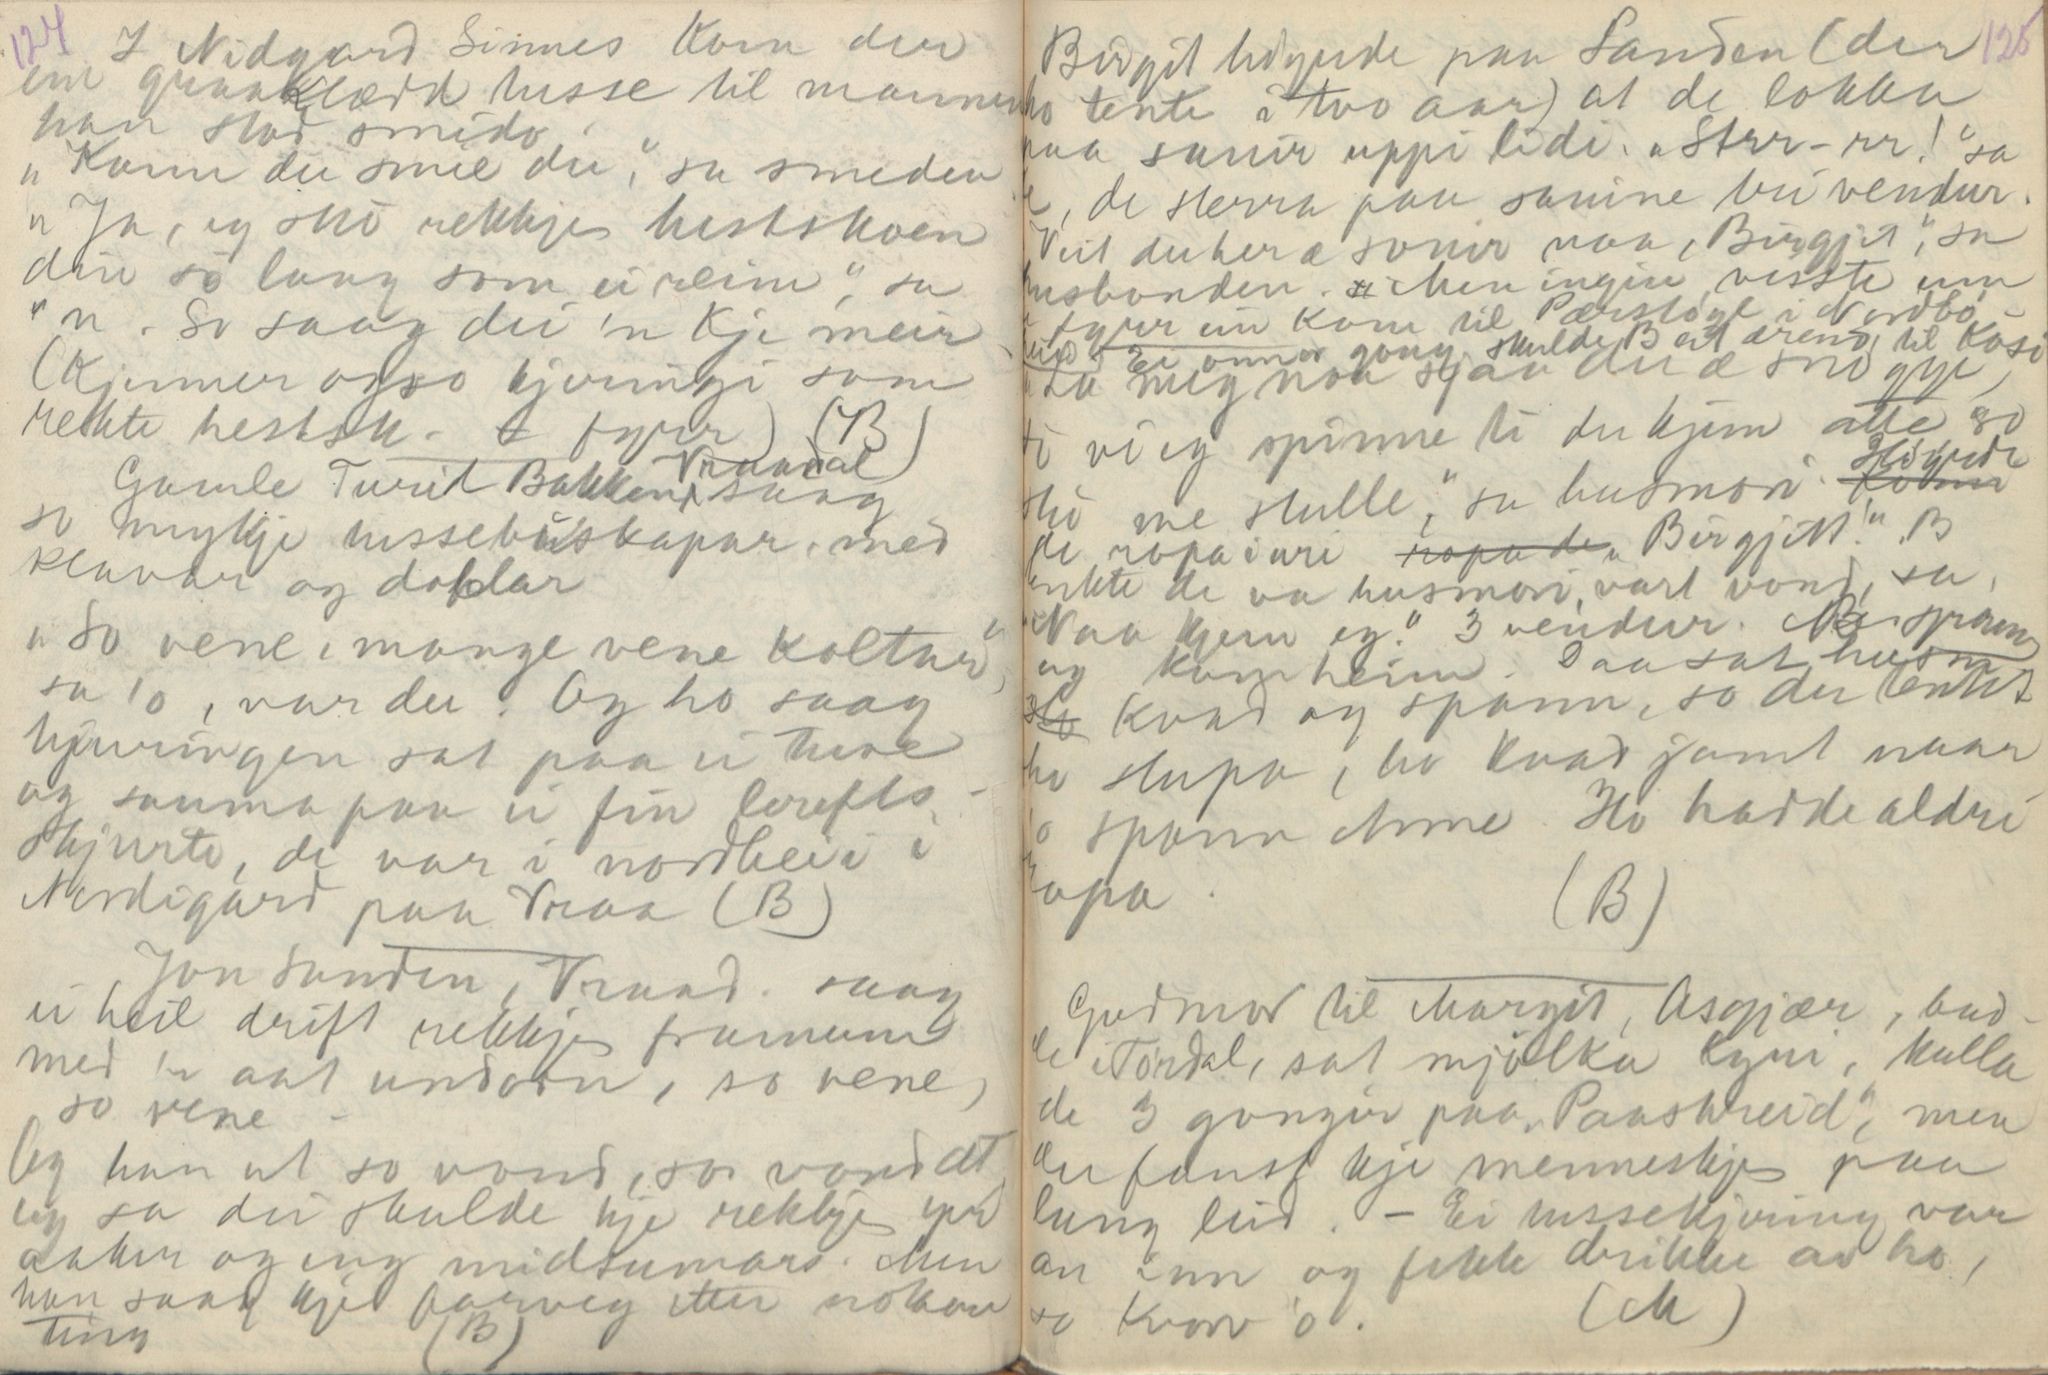 124
I Nidgard Sinnes kom der
ein graaklædd tusse til mannen
han stod smido.
"Kann du smie du," sa smeden
"Ja, eg ski rekkje hestskoen
din so lang som ei reim," sa
'n. So saag dei 'n kje meir
(Kjenner ogso kjeringi som
rekte hestsk. fyrr) (B)
Gamle Turid Bakken, Vraadal saag
so mykje tussebuskapar, med
klavar og doklar
"So vene, mange vene koltar",
sa 'o, var dei. Og ho saag
kjeringen sat paa ei tuve
og sauma paa ei fin lerefts-
skjurte, de var i nordheii i
Nordigard paa Vraa (B)
Jon Sanden, Vraad. saag
ei heil drift rekkje framum
med 'n aat undorn, so vene,
so vene -
Og han ut so vond, so vond at
og sa dei skulde kje rekkje yvi
aaker og eng midsumars. Men
han saag kje farveg etter nokon
ting (B)
125
Birgit høyrde paa Sanden (der
ho tente i tvo aar) at de lokka
paa sauir uppi lidi. "Strr-rr!" sa
de, de sterra paa sauine tri vendur.
Veit du her æ sauir naa, Birgjit," sa
husbonden. Men ingin visste um
fyrr ein kom til Pærstøyl i Nordbø
Ei onnor gong skulde B eit ærend til Kosi
"La meg naa sjaa du æ snøgge,
so vi eg spinne ti du kjem atte so
ski me stulle," sa husmori. Høyrde
de ropa uri "Birgjitt!" B
tenkte de va husmori, vart vond, sa,
"Naa kjem eg." 3 vendur. B sprang
og kom heim. Daa sat husm.
kvad og spann, so der tenkte
ho stupa, ho kvad jamt naar
ho spann Anne. Ho hadde aldri
ropa. (B)
Godmor til Margit, Asgjær, bud-
de i Tørdal, sat mjølka kyni, kalla
de 3 gongir paa "Paaskreid", men
der fanst kje menneskje paa
lang leid. - Ei tussekjering var
an inn og fekk drikke av ho,
so kvarv 'o. (M)